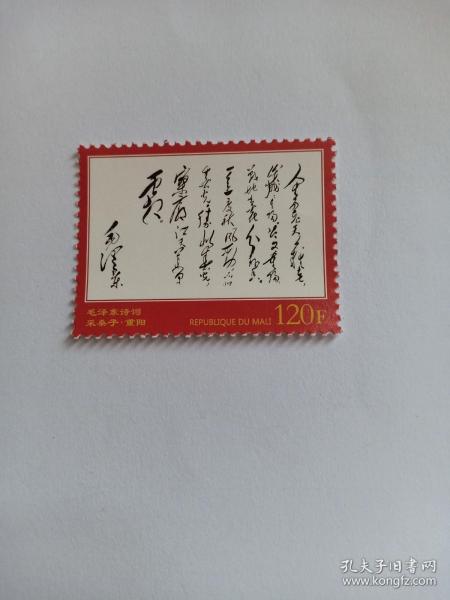 人生易老天难老
岁岁重阳今又重阳
战地黄花分外香
一年一度秋风劲不似
春光胜似春光
寥廓江天万
里霜
毛泽东
毛泽东诗词
采桑子·重阳
REPUBLIQUE DU MALI 120F
孔夫子旧书网
www.kongfz.com